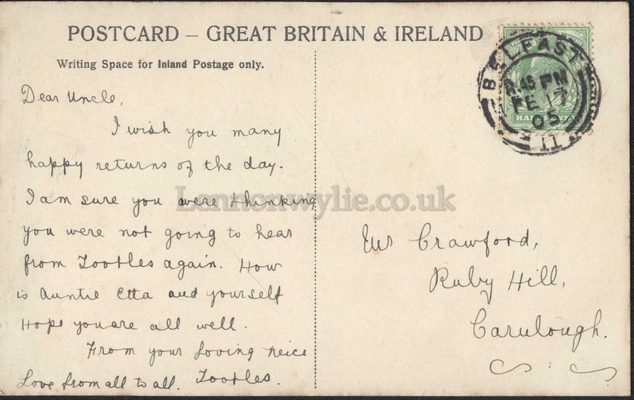 POSTCARD – GREAT BRITAIN & IRELAND
Writing Space for Inland Postage only.
Dear Uncle,
I wish you many
happy returns of the day.
I am sure you were thinking
you were not going to hear
from Tootles again. How
is Auntie Etta and yourself
Hope you are all well.
From your loving neice
Love from all to all. Tootles.
BELFAST
8.45 PM
FE 17
05
11
HALFPENNY
Mr Crawford,
Ruby Hill,
Carulough.
Lennonwylie.co.uk